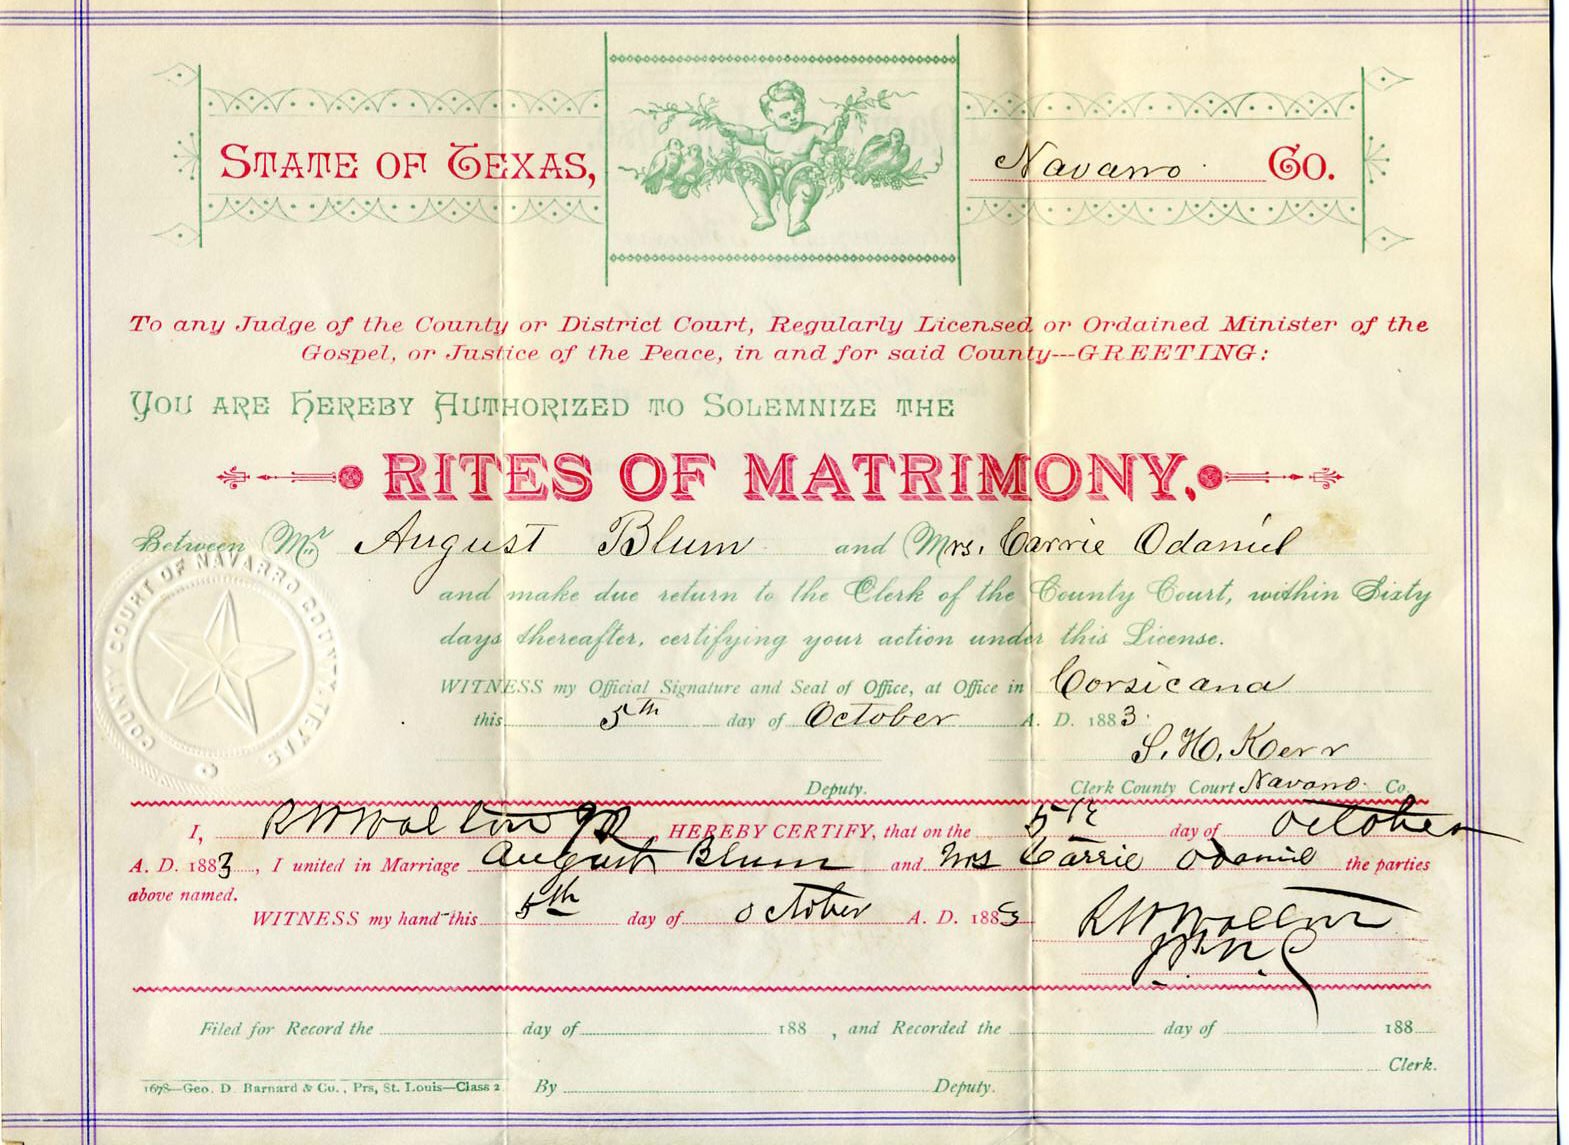 STATE OF TEXAS, Navarro Co.
To any Judge of the County or District Court, Regularly Licensed or Ordained Minister of the
Gospel, or Justice of the Peace, in and for said County---GREETING:
YOU ARE HEREBY AUTHORIZED TO SOLEMNIZE THE
RITES OF MATRIMONY,
Between Mr August Blum and Mrs. Carrie Odaniel
COUNTY COURT OF NAVARRO COUNTY TEXAS
and make due return to the Clerk of the County Court, within Sixty
days thereafter, certifying your action under this License.
WITNESS my Official Signature and Seal of Office, at Office in Corsicana
this 5th day of October A. D. 1883.
S. H. Kerr
Deputy. Clerk County Court Navarro Co.
I, R W Walton HEREBY CERTIFY, that on the 5th day of October
A. D. 1883, I united in Marriage August Blum and Mrs Carrie Odaniel the parties
above named.
WITNESS my hand this 5th day of October A. D. 1883 R W Walton
J.P. N. C
Filed for Record the day of 188 , and Recorded the day of 188
Clerk.
1678—Geo. D Barnard & Co., Prs, St. Louis—Class 2 By Deputy.